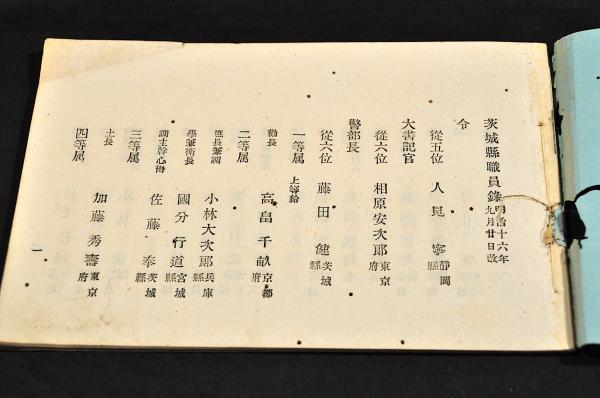 茨城縣職員錄 明治十六年九月廿日改
令
從五位 人見 寧 靜岡縣
大書記官
從六位 相原安次郎 東京府
警部長
從六位 藤田 健 茨城縣
一等属 上等給
勸長 高畠千畝 京都府
二等属
庶長兼調 小林大次郎 兵庫縣
學兼衛長 國分行道 宮城縣
調主幹心得 佐藤 奉 茨城縣
三等属
土長 加藤秀壽 東京府
四等属
一